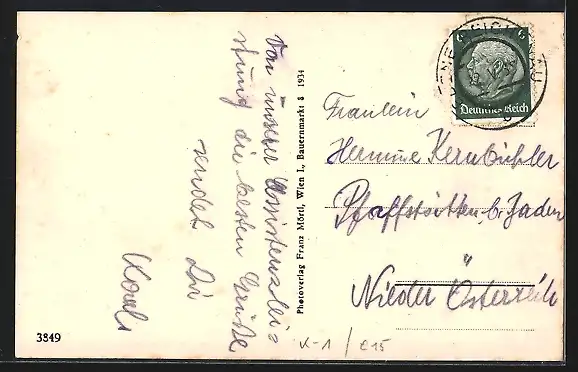 Von unserer Assistenzlei=
stung die besten Grüße
sendet Dir
Karl
Photoverlag Franz Mörtl, Wien I., Bauernmarkt 8 1934
6 6
Deutsches Reich
Fräulein
Hermine Kernbichler
Pfaffstätten b. Baden
Nieder Österreich
3849
K-1 / e15